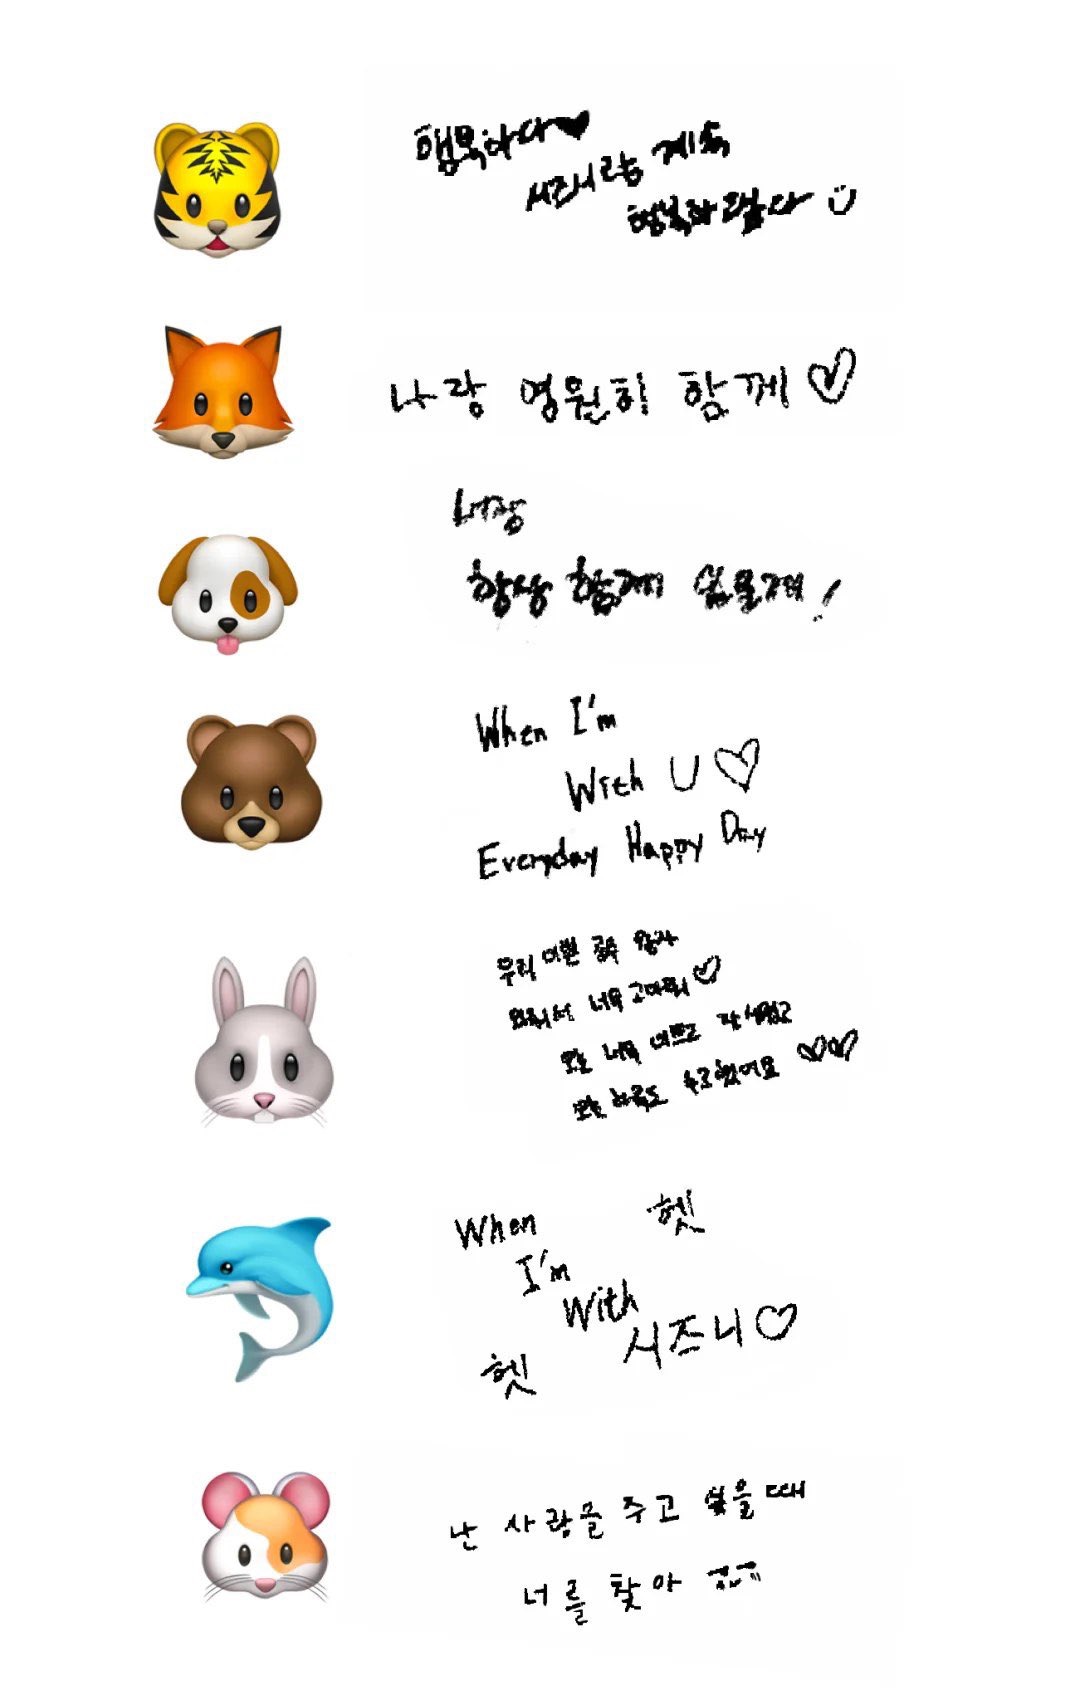 행복하다♥
너희랑 계속
행복하고싶다
나랑 영원히 함께♡
너랑
항상 함께 있을거야!
When I'm
With U♡
Everyday Happy Day
우리 이쁜 공주 왕자
와줘서 너무 고마워♡
오늘 너무 이쁘고 잘생겼고
오늘 하루도 수고했어요♡♡
When 헷
I'm
With
시즈니♡
헷
난 사랑을 주고 싶을때
너를 찾아